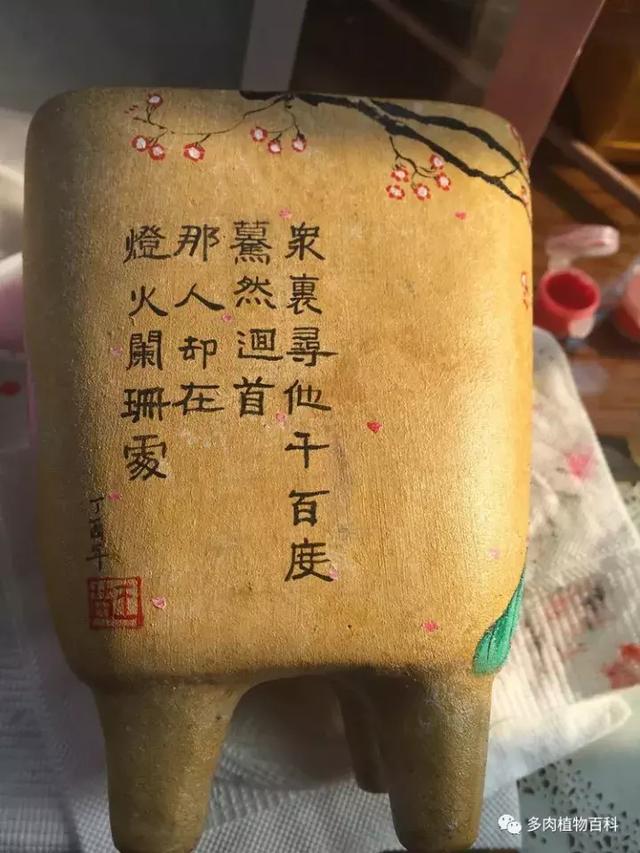 衆裏尋他千百度
驀然迴首
那人却在
燈火闌珊處
丁酉年
多肉植物百科